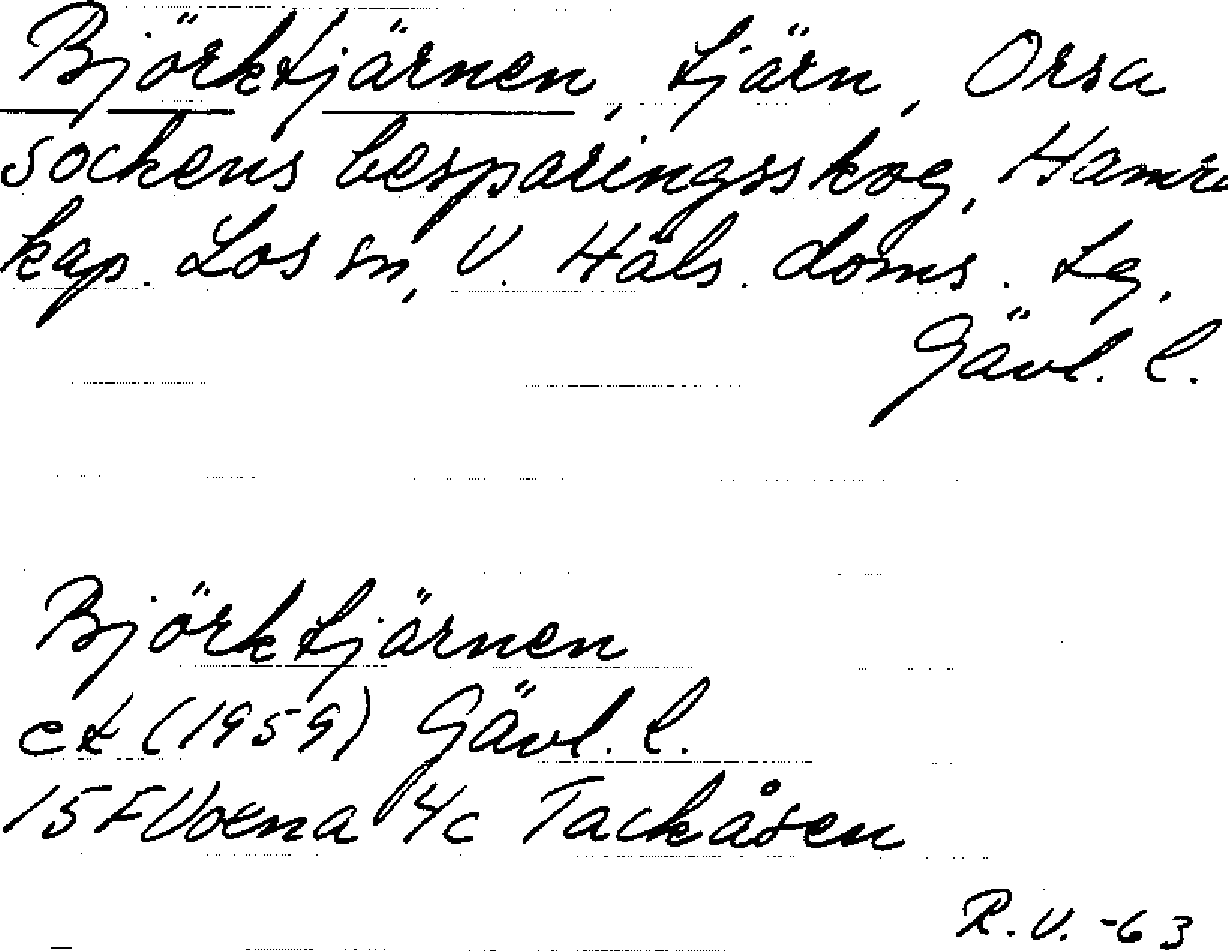 Björktjärnen, tjärn, Orsa
sockens besparingsskog, Hamra
kap. Los sn, V. Häls. doms. Lg,
Gävl. l.
Björktjärnen
ek (1959) Gävl. l.
15F Voxna 4c Tackåsen
R.V. -63